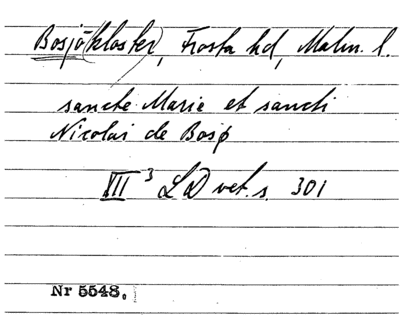 Bosjö(kloster), Frosta hd, Malm. l.
sancte Marie et sancti
Nicolai de Bosø
XII 3 LD vet. s. 301
Nr 5548.